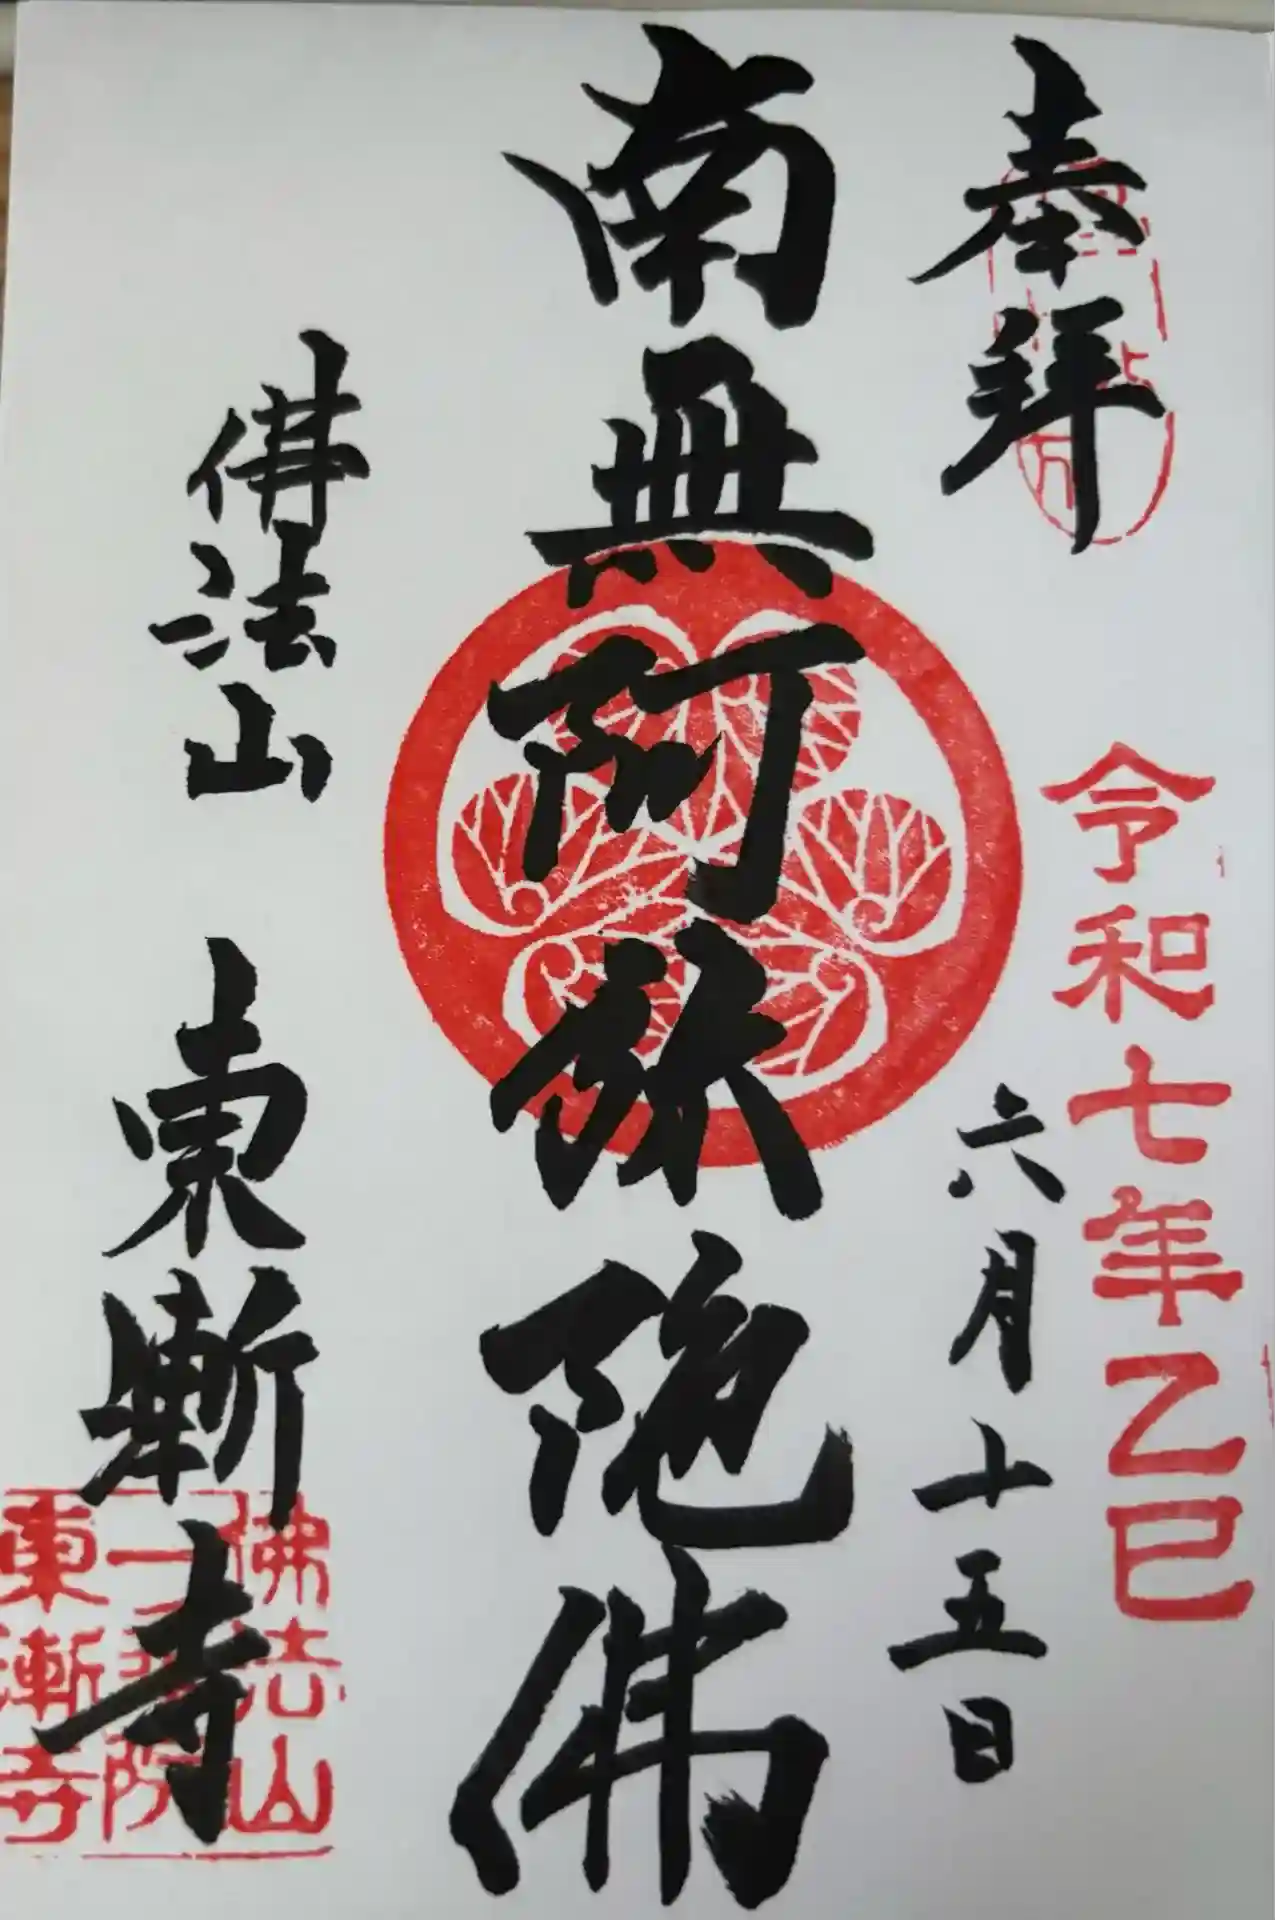 奉拜
令和七年乙巳
六月十五日
南無阿弥陀佛
佛法山 東漸寺
佛法山
東漸寺